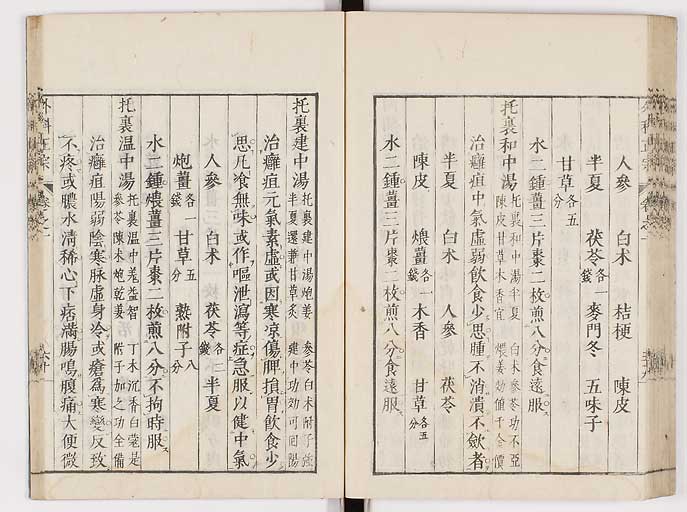 人參　白朮　桔梗　陳皮
半夏　茯苓各一錢　麥門冬　五味子
甘草各五分
水二鍾薑三片棗二枚煎八分食遠服
托裏和中湯
托裏和中湯半夏　白朮參苓功不亞
陳皮甘草木香宜　煨姜効值千金價
治癰疽中氣虛弱飲食少思腫不消潰不歛者
半夏　白朮　人參　茯苓
陳皮　煨薑各一錢　木香　甘草各五分
水二鍾薑三片棗二枚煎八分食遠服
托裏建中湯
托裏建中湯炮姜　參苓白朮附子強
半夏還兼甘草炙　建中功効可回陽
治癰疽元氣素虛或因寒凉傷脾損胃飲食少
思凡食無味或作嘔泄瀉等症急服以健中氣
人參　白朮　茯苓各二錢　半夏
炮薑各一錢　甘草五分　熟附子八分
水二鍾煨薑三片棗二枚煎八分不拘時服
托裏溫中湯
托裏溫中羌益智　丁木沉香白蔻是
參苓陳朮炮乾姜　附子加之功全備
治癰疽陽弱陰寒脉虛身冷或瘡爲寒變反致
不疼或膿水清稀心下痞滿腸鳴腹痛大便微
外科正宗
卷之一